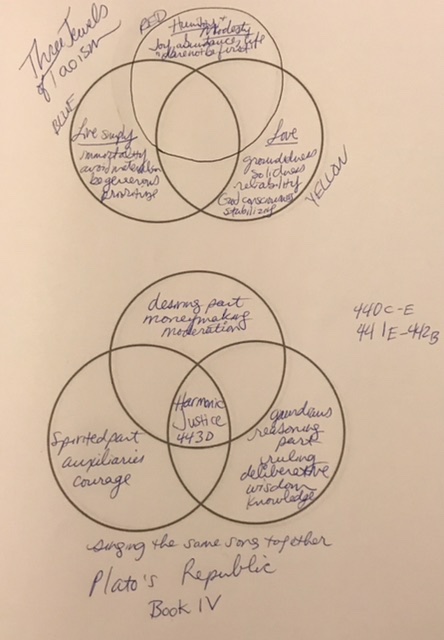 Three Jewels
of Taoism
RED
Humility +
Modesty
Joy, abundance, life
dare not be first
BLUE
Live simply
immortality
avoid materialism
be generous
Love
groundedness
solidness
reliability
Good consciousness
stabilizing
YELLOW
desiring part
moneymaking
moderation
440C-E
441E-442B
Harmonic
Justice
443D
Spirited part
auxiliaries
courage
guardians
reasoning
part
ruling
deliberative
wisdom
knowledge
singing the same song together
Plato's Republic
Book IV